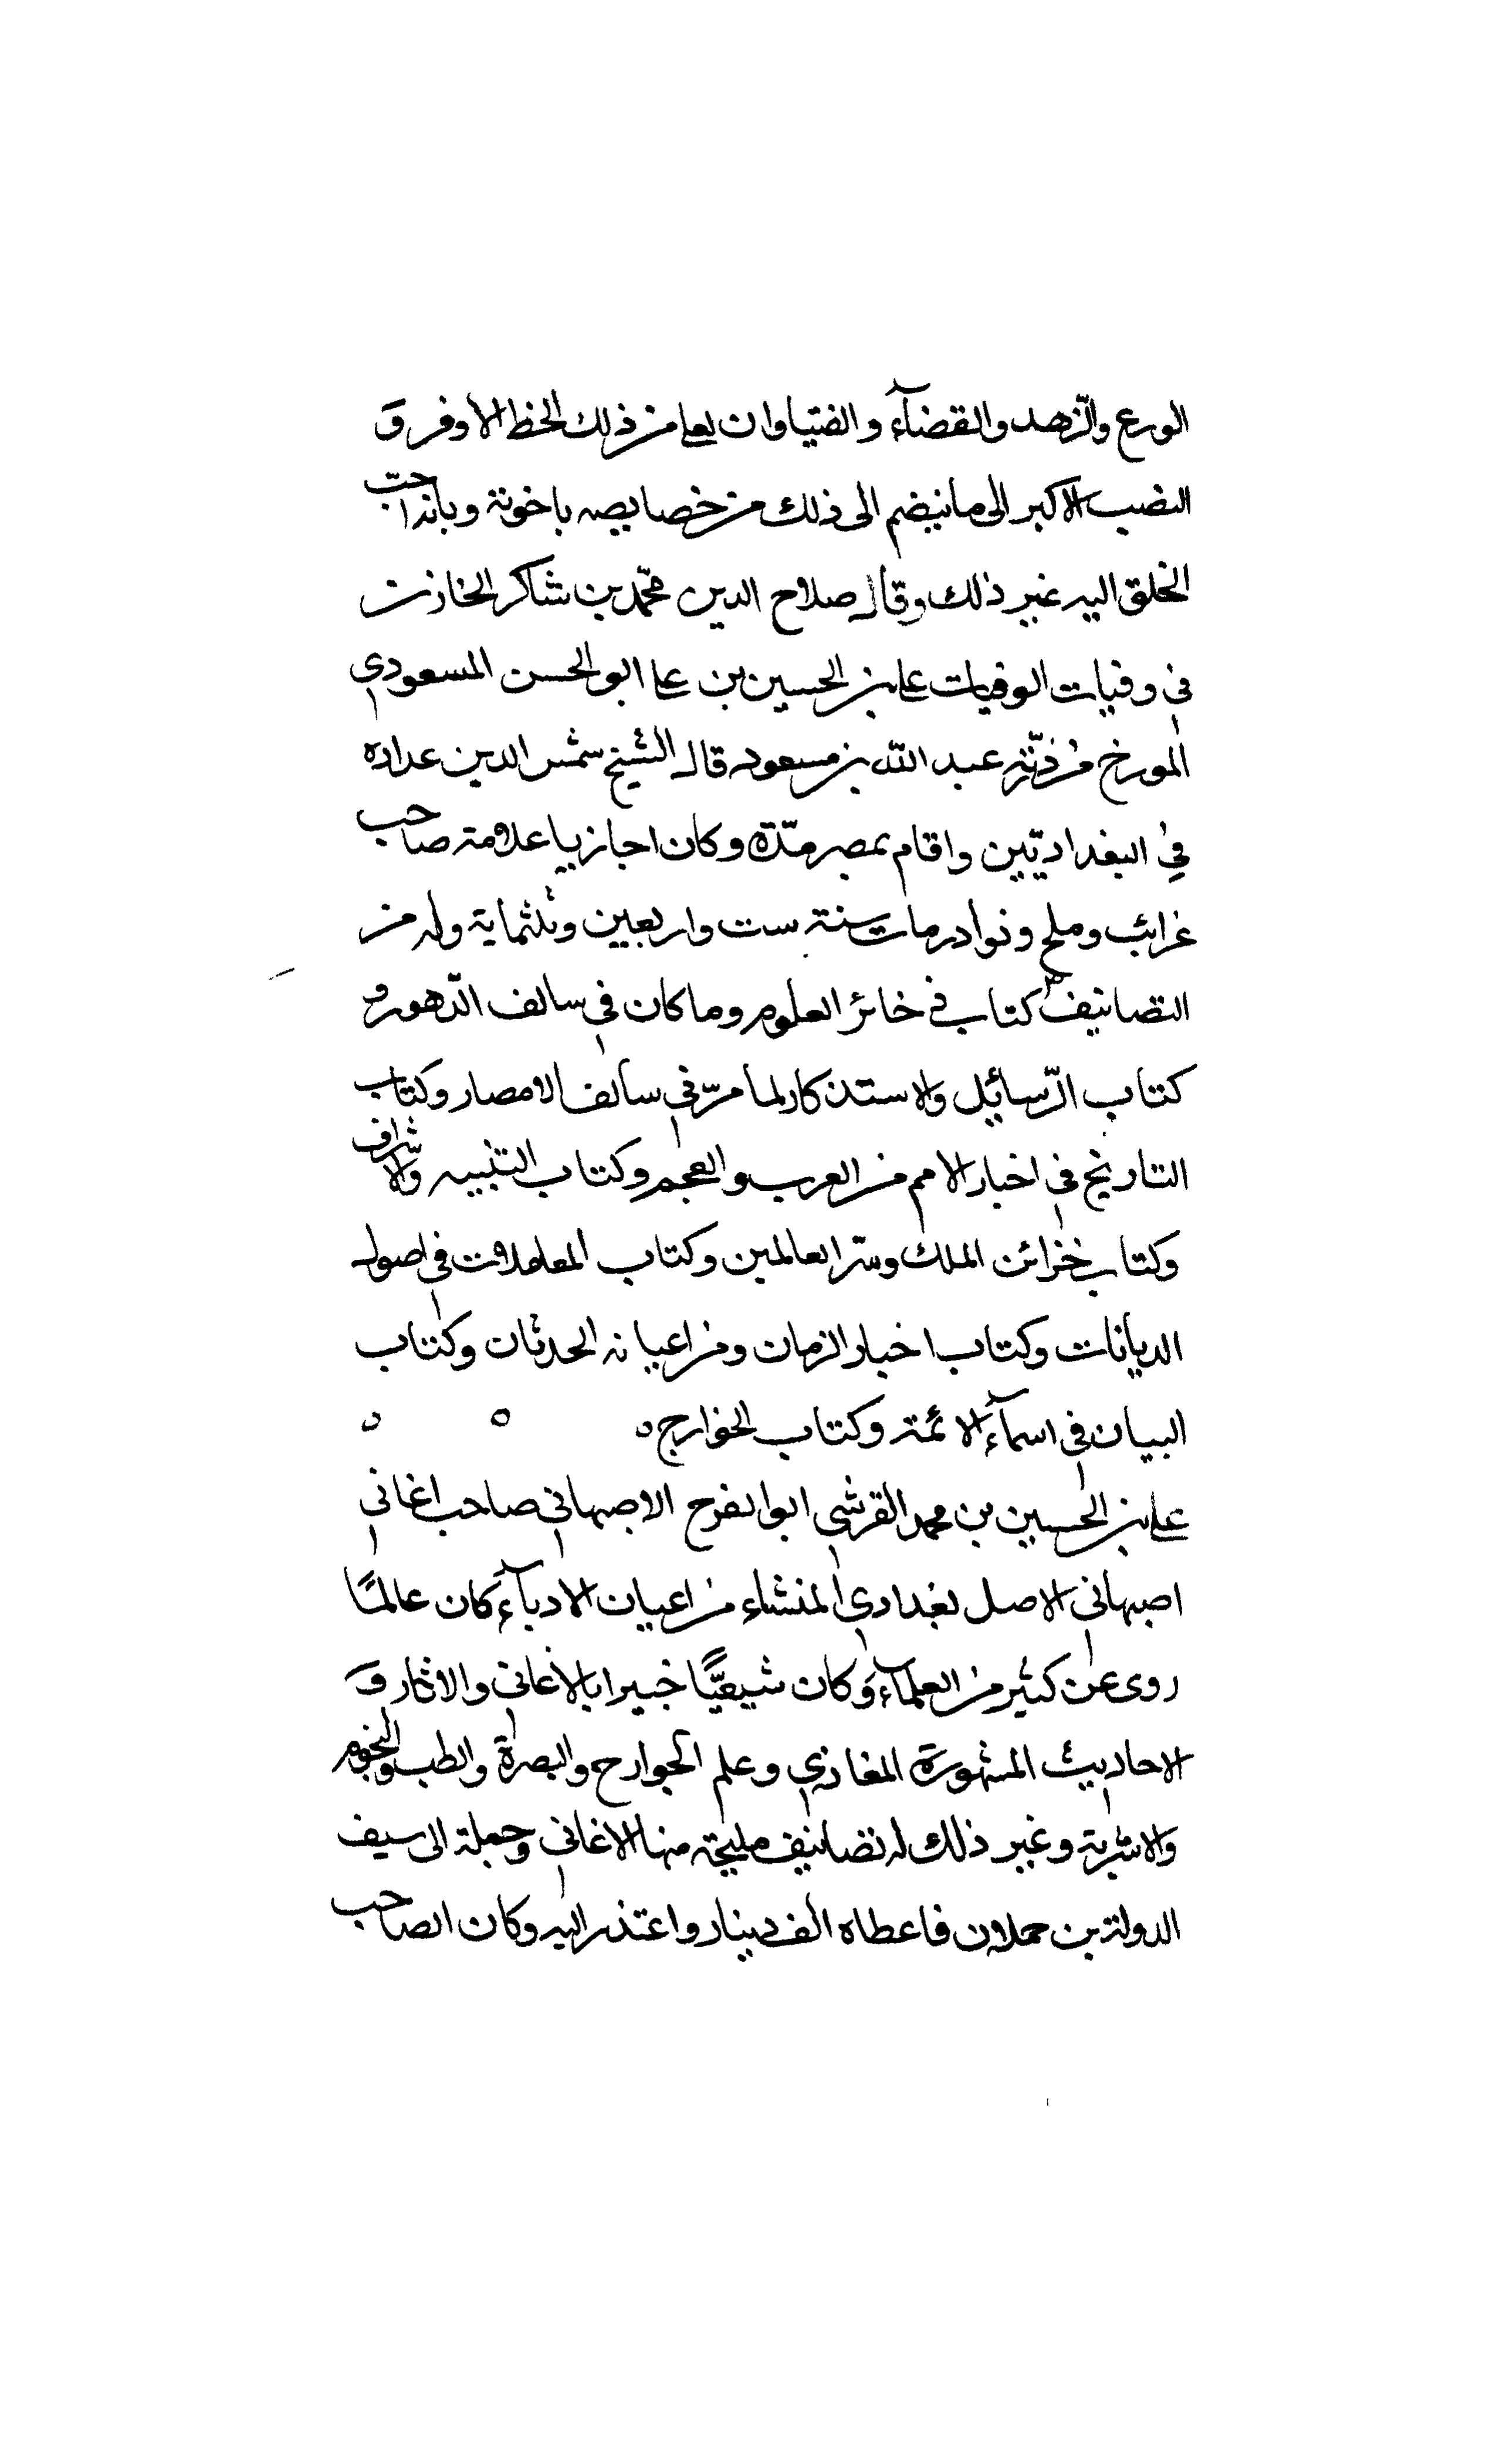 الورع والزّهد والقضآء والفتيا وان لعلي من ذلك الحظ الاوفر و
النصيب الاكبر الى ما ينضم الى ذلك من خصايصه باخوته وبانه احب
الخلق اليه غير ذلك وقال صلاح الدين محمّد بن شاكر الخازن
في وفيات الوفيات علي بن الحسين بن علي ابو الحسن المسعودي
المورخ من ذرّيّته عبد الله بن مسعود قال الشيخ شمس الدين عداده
في البغداديّين واقام بمصر مدّة وكان اخباريا علامة صاحب
غرائب وملح ونوادر مات سنة ست واربعين وثلثماية وله من
التصانيف كتاب في خائر العلوم وما كان في سالف الدّهور و
كتاب الرّسائل والاستذكار لما مرّ في سالف الامصار وكتاب
التاريخ في اخبار الامم من العرب والعجم وكتاب التنبيه والاشراف
وكتاب خزائن الملك وسرّ العالمين وكتاب المعاملات في اصول
الديانات وكتاب اخبار الزمان ومن اعيانه الحدثان وكتاب
البيان في اسمآء الائمة وكتاب الخوارج
علي بن الحسين بن محمد القرشي ابو الفرج الاصبهاني صاحب اغاني
اصبهاني الاصل بغدادي المنشاء من اعيان الادبآء كان عالمًا
روى عن كثير من العلماء وكان شيعيًّا خبيرا بالاغاني والاثار و
الاحاديث المشهورة المغازي وعلم الجوارح والبصرة والطب والنجوم
والاشربة وغير ذلك له تصانيف مليحة منها الاغاني وحمله الى سيف
الدولة بن حملان فاعطاه الف دينار واعتذر اليه وكان الصاحب